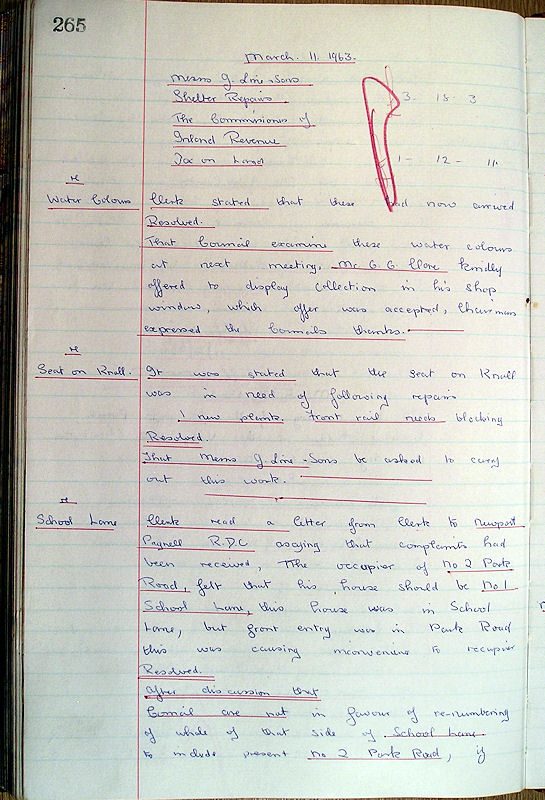 265
March. 11. 1963.
Messrs G. Line & Sons
Shelter Repairs 3. 15. 3
The Commissioners of
Inland Revenue
Tax on Land 1 - 12 - 11.
Water Colours Clerk stated that these had now arrived
Resolved.
That Council examine these water colours
at next meeting, Mr G. G. kindly
offered to display collection in his shop
window, which offer was accepted, Chairman
expressed the Councils thanks.
Seat on Knoll. It was stated that the seat on Knoll
was in need of following repairs
1 new plank. Front rail needs blocking
Resolved.
That Messrs G. Line & Sons be asked to carry
out this work.
School Lane Clerk read a letter from Clerk to Newport
Pagnell R.D.C saying that complaints had
been received, The occupier of No 2 Park
Road, felt that his house should be No 1
School Lane, this house was in School
Lane, but front entry was in Park Road
this was causing inconvenience to
Resolved.
After discussion that
Council are not in favour of re-numbering
of whole of that side of School Lane
to include present No 2 Park Road, if